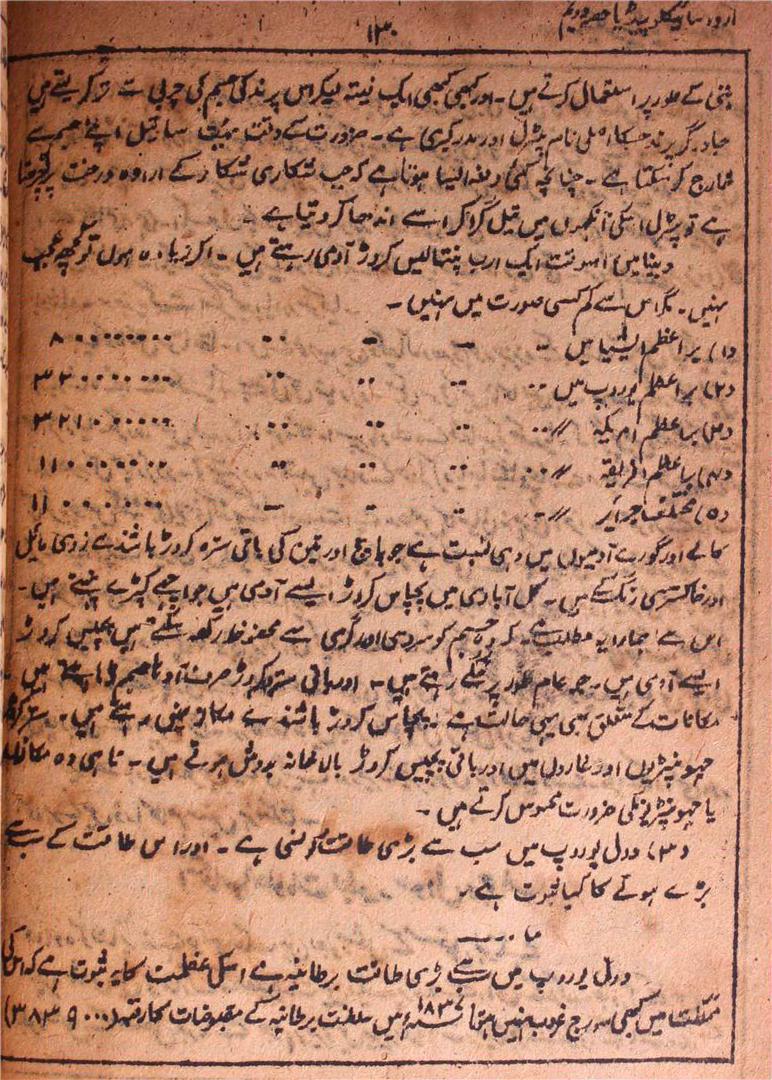 اردو سائیکلوپیڈیا حصہ دویم
۱۳۰
بتی کے طور پر استعمال کرتے ہیں ۔ اور کبھی کبھی ایک فیتہ لیکر اس پرند کی جسم کی چربی سے تر کر لیتے ہیں
پرند جسکا اصلی نام پٹرل اور ہے ۔ ضرورت کے وقت بہت سا تیل اپنے جسم سے
خارج کر سکتا ہے ۔ چنانچہ کئی دفعہ ایسا ہوتا ہے کہ جب شکاری شکار کے ارادہ درخت پر چڑھتا
ہے تو پٹرل اسکی آنکھوں میں تیل گرا کر اسے اندھا کر دیتا ہے ۔
دنیا میں اسوقت ایک ارب پنتالیس کروڑ آدمی رہتے ہیں ۔ اگر زیادہ ہوں تو کچھ عجب
نہیں ۔ مگر اس سے کم کسی صورت میں نہیں ۔
(۱) براعظم ایشیا میں
(۲) براعظم یوروپ میں
(۳) براعظم امریکہ 〃
(۴) براعظم افریقہ 〃
(۵) مختلف جزائر 〃
کالے اور گورے آدمیوں میں وہی نسبت ہے جو پانچ اور تین کی باقی ستره کروڑ باشندے زردی مائیل
اور خاکستری رنگ کے ہیں ۔ کل آبادی میں پچاس کروڑ ایسے آدمی ہیں جو اچھے کپڑے پہنتے ہیں ۔
اس سے ہمارا یہ مطلب ہے ۔ کہ وہ جسم کو سردی اور گرمی سے محفوظ رکھ سکتے ہیں پچیس کروڑ
ایسے آدمی ہیں ۔ جو عام طور پر ننگے رہتے ہیں ۔ اور باقی ستر کروڑ صرف آدھا جسم ڈھانپتے ہیں ۔
مکانات کے متعلق بھی یہی حالت ہے ۔ پچاس کروڑ باشندے مکانو نمیں رہتے ہیں ۔ ستر کروڑ
جھونپڑیوں اور غاروں میں اور باقی پچیس کروڑ بالا خانہ بدوش ہوتے ہیں ۔ نا ہی وہ
یا جھونپڑیونکی ضرورت محسوس کرتے ہیں ۔
(۳) دول یوروپ میں سب سے بڑی طاقت کونسی ہے ۔ اور اس طاقت کے سب سے
بڑے ہونے کا کیا ثبوت ہے ۔
دول یوروپ میں سب سے بڑی طاقت برطانیہ ہے اسکی عظمت کا یہ ثبوت ہے کہ اس کی
مملکت میں کبھی سورج غروب نہیں ہوتا ۱۸۳۷ سنہ میں سلطنت برطانیہ کے مقبوضات کا رقبہ (۳۸۳۹۰۰۰)